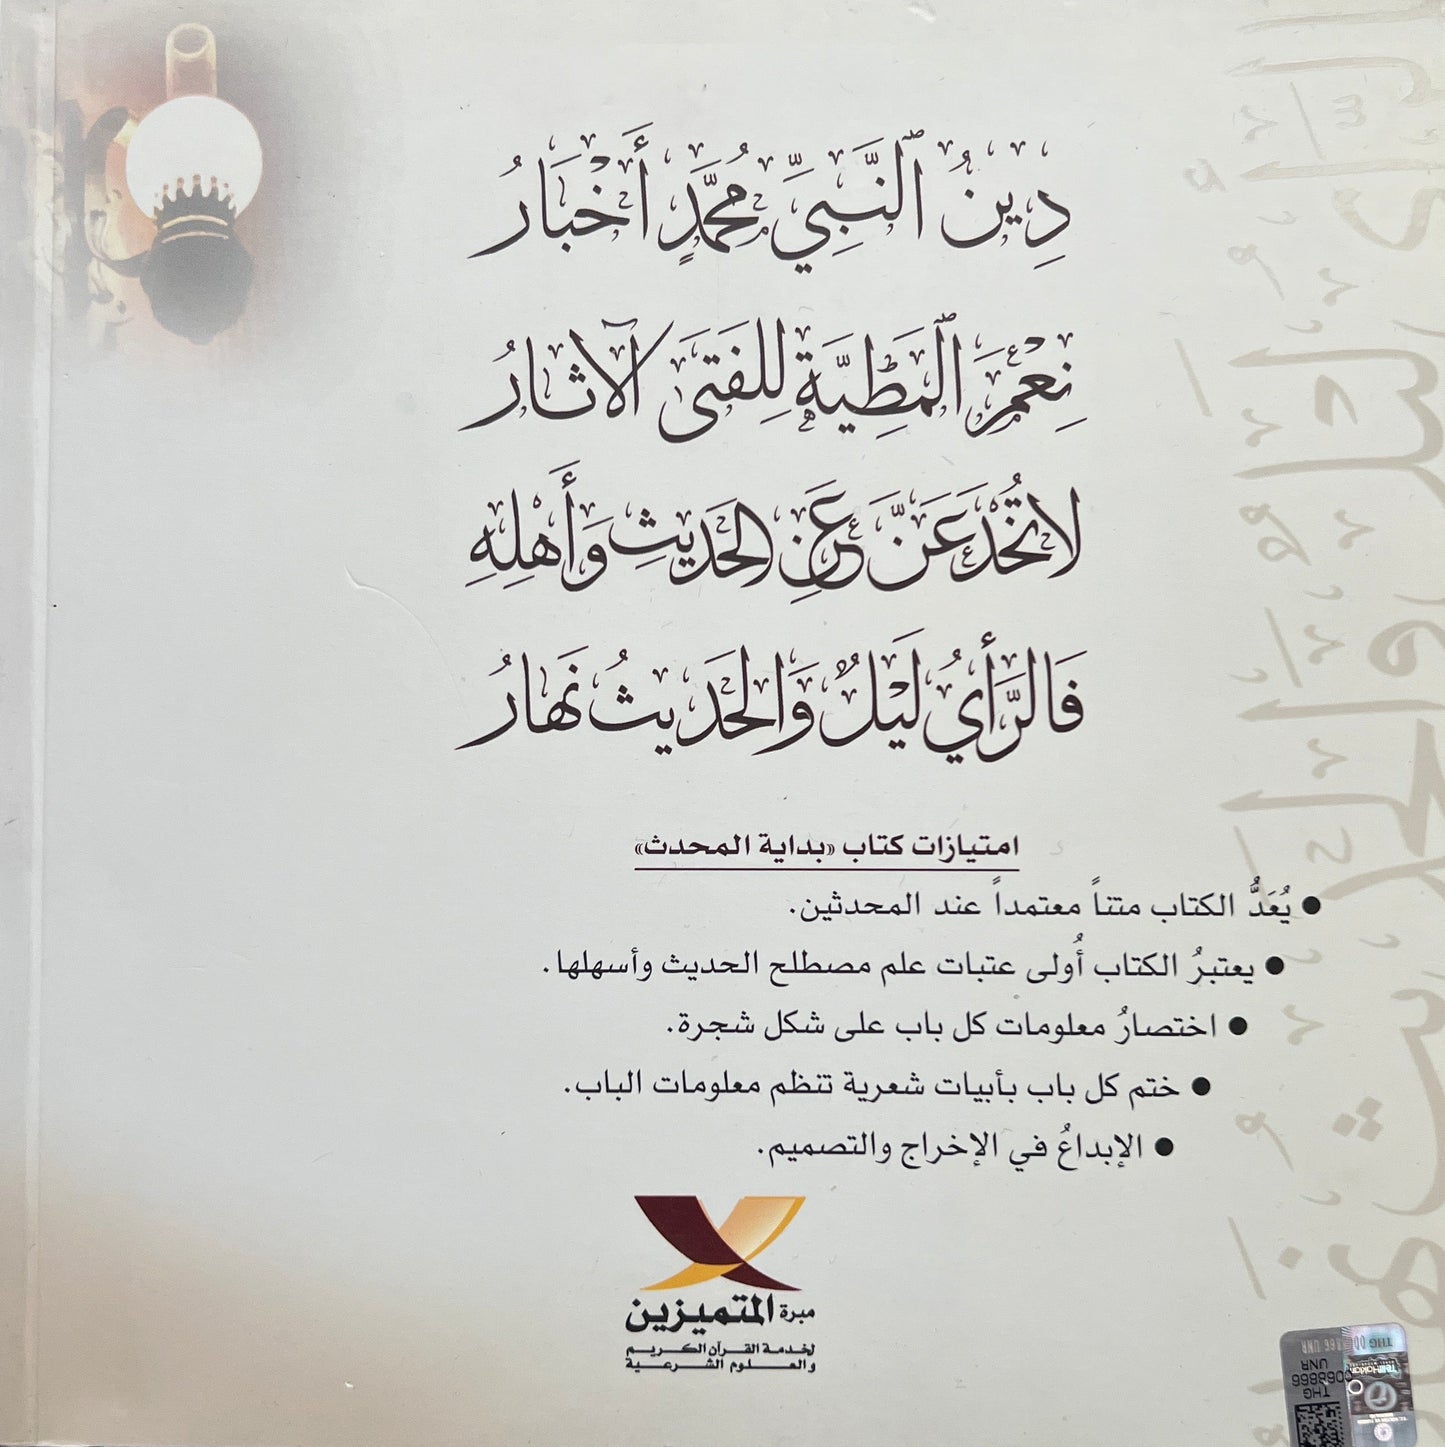 دِينُ ٱلنَّبِيِّ مُحَمَّدٍ أَخْبَارُ
نِعْمَ ٱلْمَطِيَّةُ لِلْفَتَى الْآثَارُ
لَا تُخْدَعَنَّ عَنِ الْحَدِيثِ وَأَهْلِهِ
فَالرَّأْيُ لَيْلٌ وَالْحَدِيثُ نَهَارُ
امتيازات كتاب «بداية المحدث»
● يُعَدُّ الكتاب متناً معتمداً عند المحدثين.
● يعتبرُ الكتاب أُولى عتبات علم مصطلح الحديث وأسهلها.
● اختصارُ معلومات كل باب على شكل شجرة.
● ختم كل باب بأبيات شعرية تنظم معلومات الباب.
● الإبداعُ في الإخراج والتصميم.
مبرة المتميزين
لخدمة القرآن الكريم
والعلوم الشرعية
THG
UNR